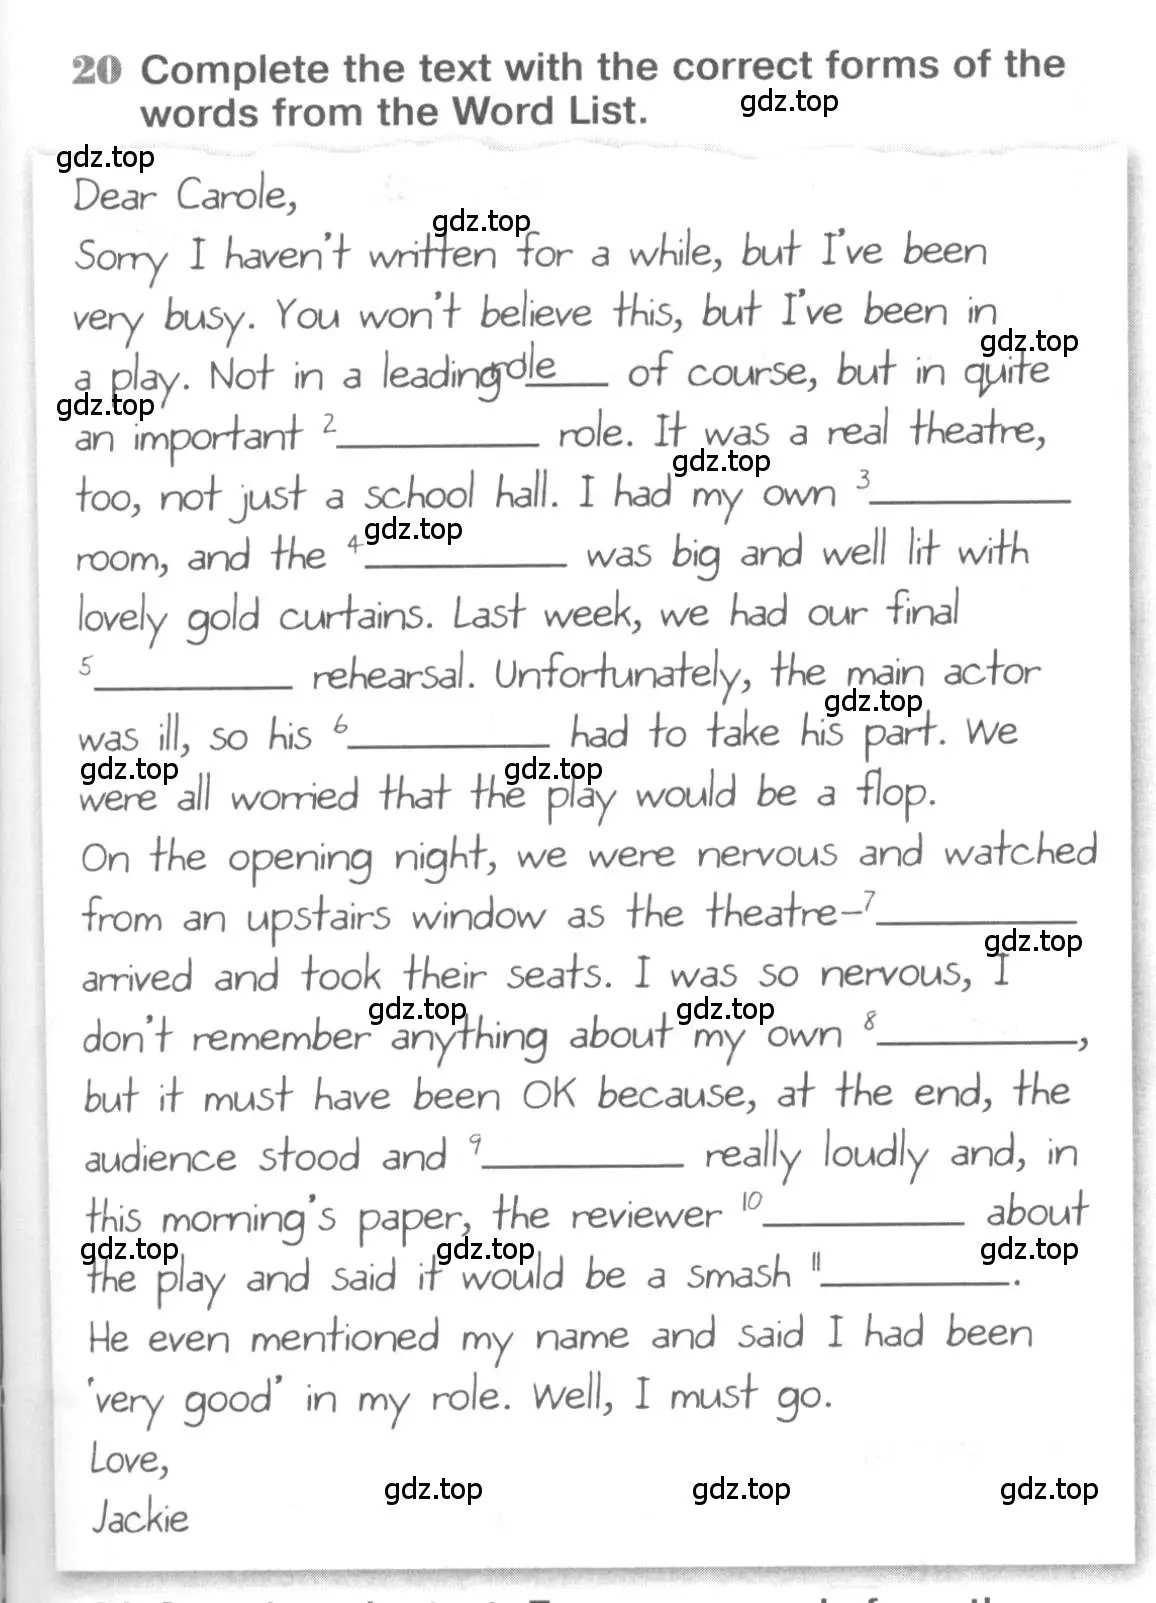 20 Complete the text with the correct forms of the
words from the Word List.
gdz.top
gdz.top
Dear Carole,
gdz.top
Sorry I haven't written for a while, but I've been
very busy. You won't believe this, but I've been in
gdz.top
a play. Not in a leading role of course, but in quite
gdz.top
an important 2__________ role. It was a real theatre,
gdz.top
too, not just a school hall. I had my own 3__________
gdz.top
room, and the 4__________ was big and well lit with
lovely gold curtains. Last week, we had our final
5__________ rehearsal. Unfortunately, the main actor
gdz.top
was ill, so his 6__________ had to take his part. We
gdz.top gdz.top
were all worried that the play would be a flop.
On the opening night, we were nervous and watched
from an upstairs window as the theatre-7__________
gdz.top
arrived and took their seats. I was so nervous, I
gdz.top gdz.top
don't remember anything about my own 8__________,
but it must have been OK because, at the end, the
audience stood and 9__________ really loudly and, in
this morning's paper, the reviewer 10__________ about
gdz.top gdz.top gdz.top
the play and said it would be a smash 11__________.
He even mentioned my name and said I had been
'very good' in my role. Well, I must go.
Love,
gdz.top gdz.top gdz.top
Jackie